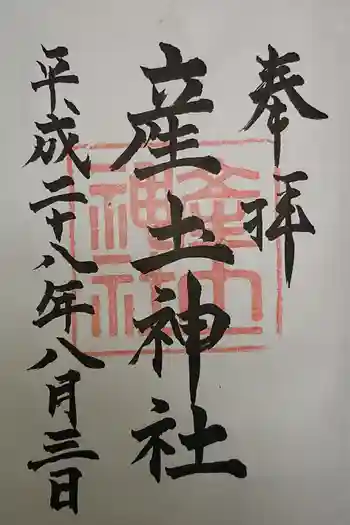 奉拝
産土神社
平成二十八年八月三日
産土
神社